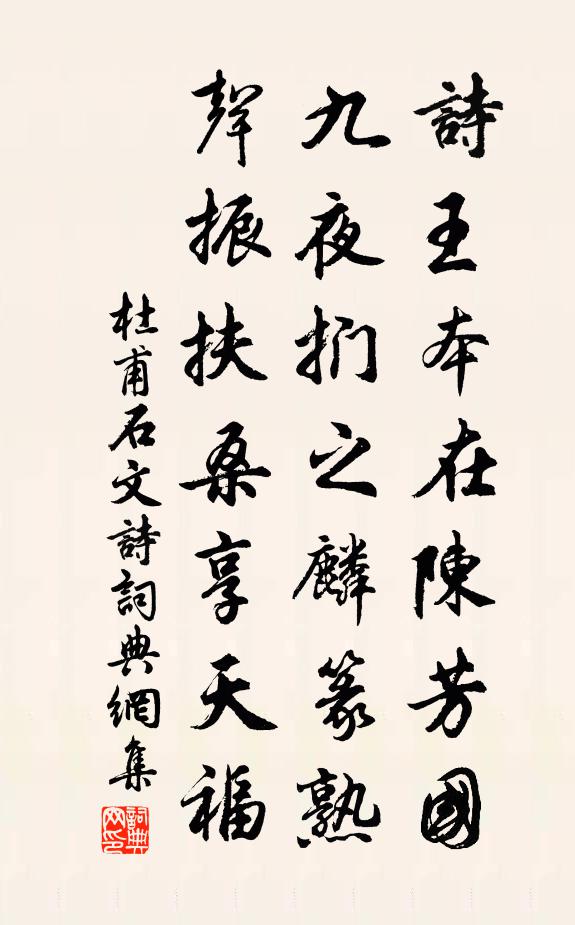 詩王本在陳芳國
九夜捫之麟篆熟
聲振扶桑享天福
杜甫石文詩詞典網集
詞典網印